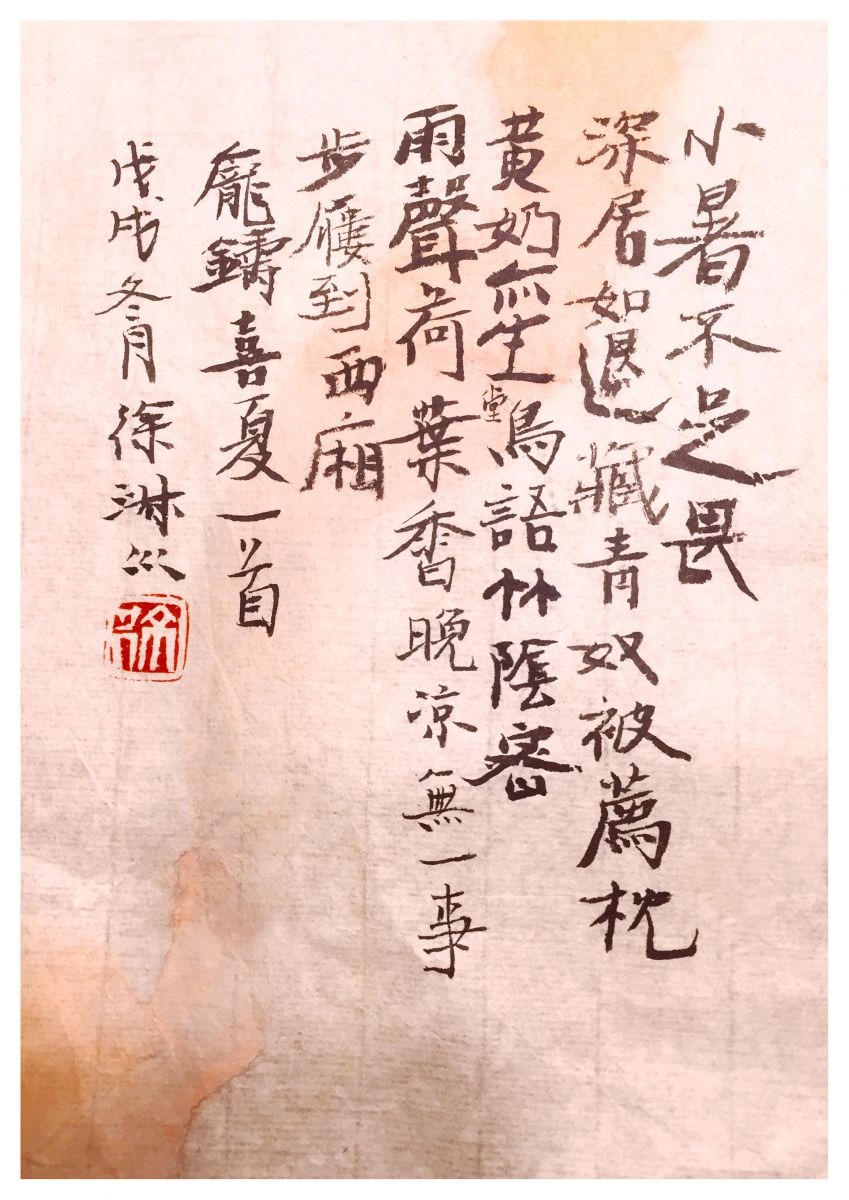 小暑不足畏
深居如退藏青奴被薦枕
黄奶亦生堂鳥語竹陰密
雨聲荷葉香晚凉無一事
步屨到西廂
龐鑄喜夏一首
戊戌冬月徐淋